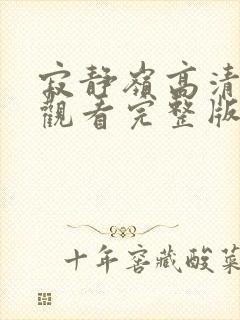 寂靜嶺高清
觀看完整版
十年窖藏酸菜